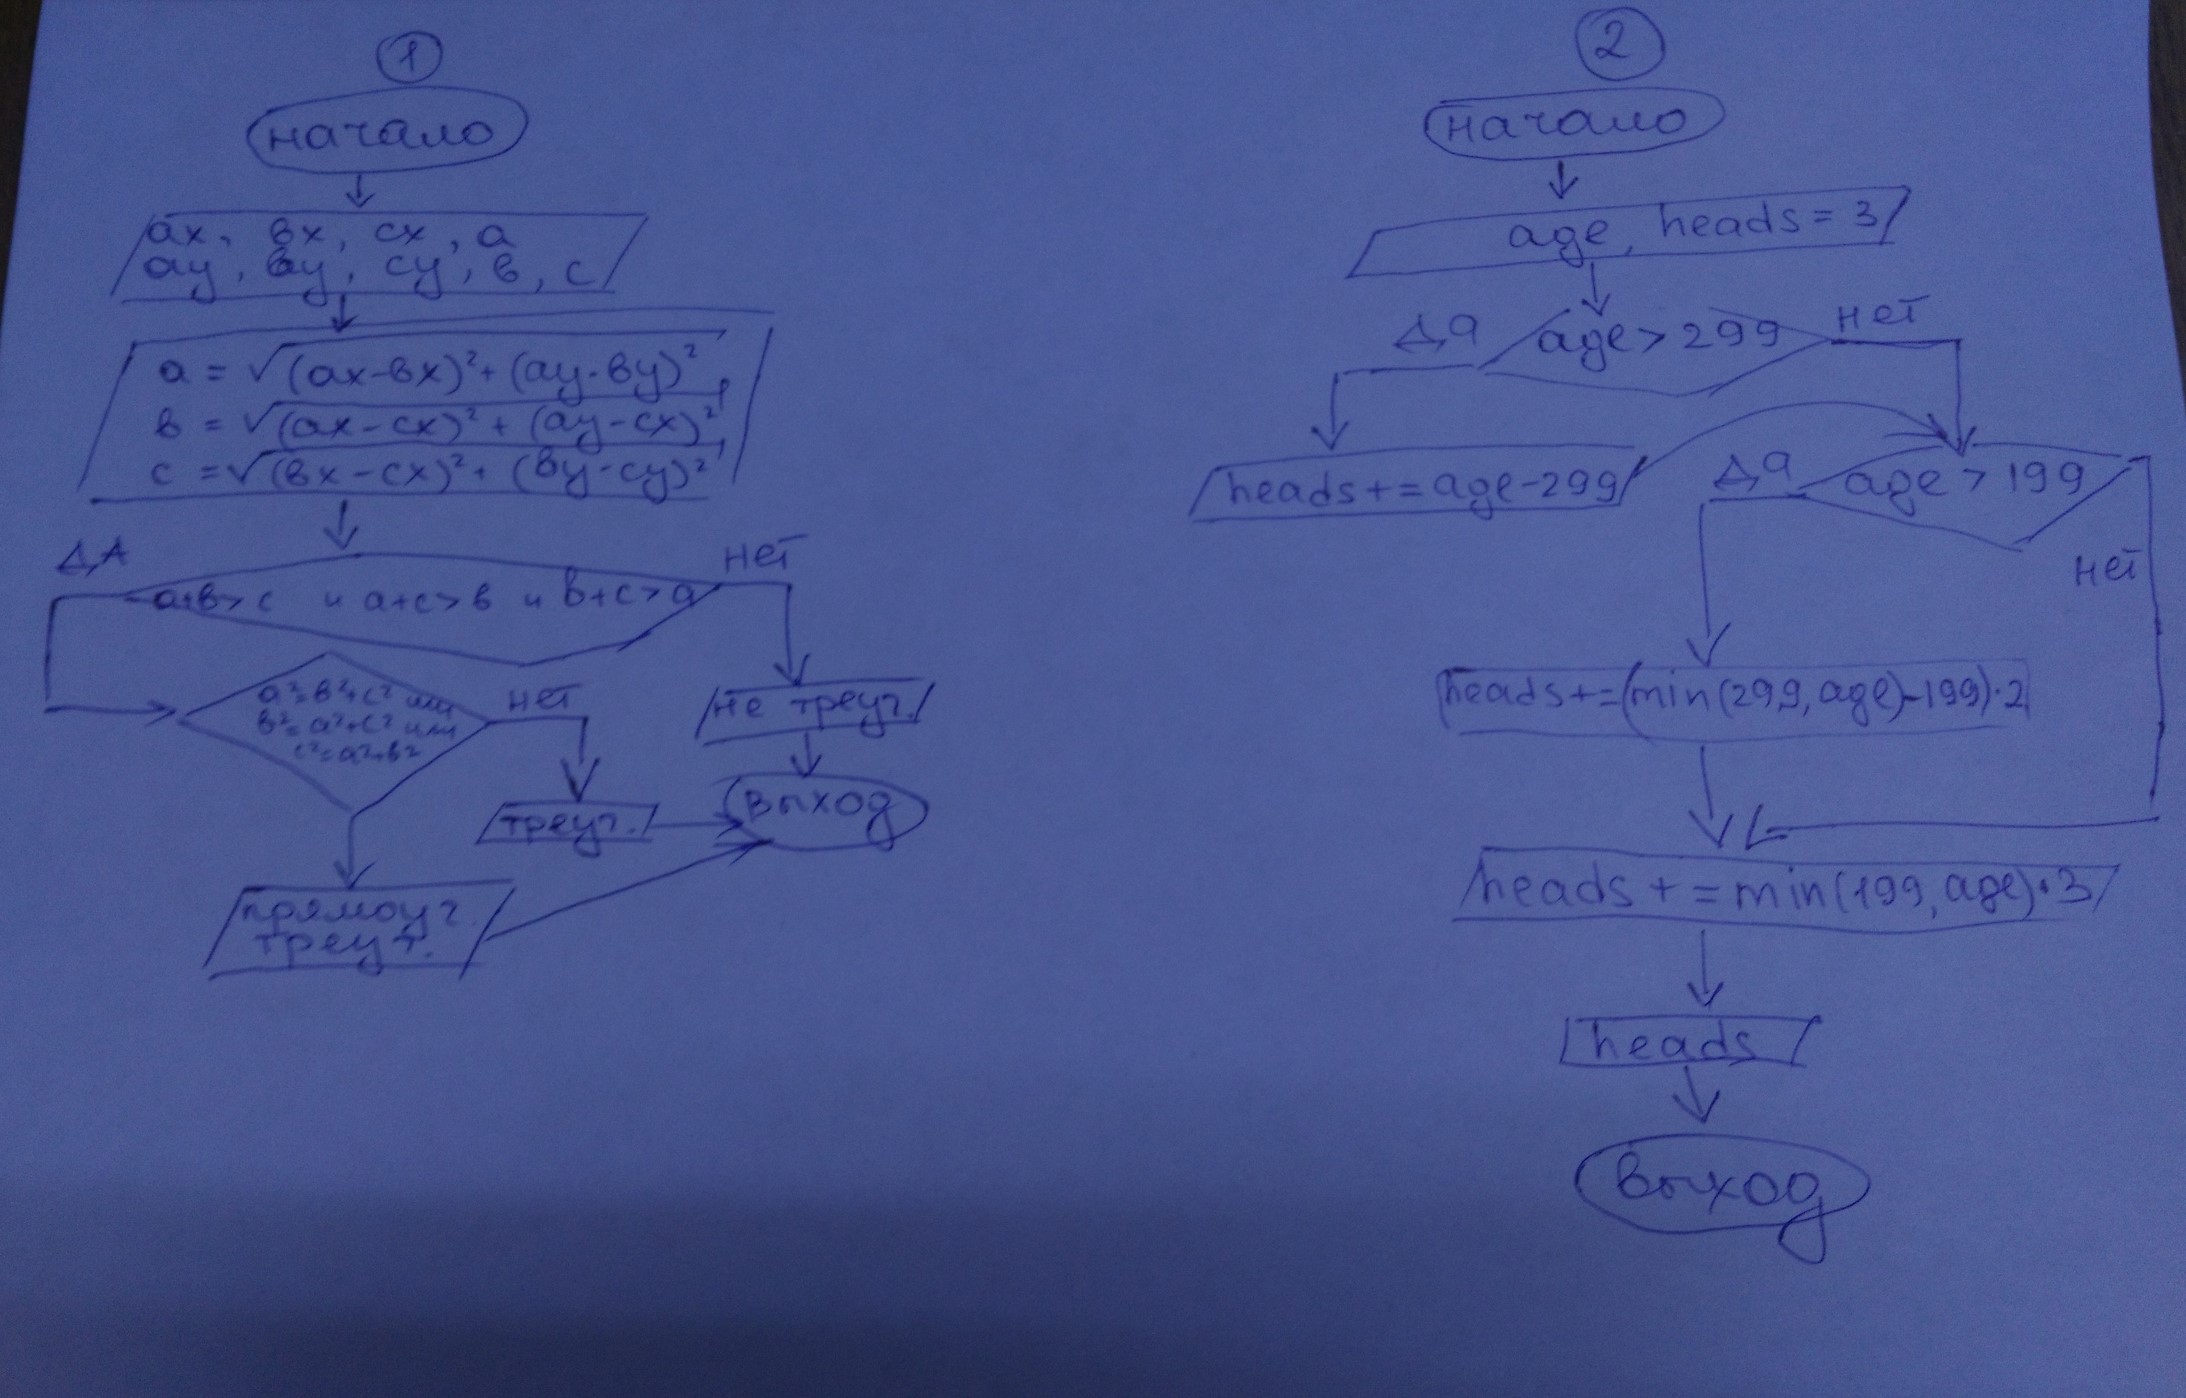 1
начало
ax, вx, cx, a
ay, вy, cy, в, c
a = √(ax-вx)²+(ay-вy)²,
в = √(ax-cx)²+(ay-cx)²,
c = √(вx-cx)²+(вy-cy)²
ДА
нет
a+в>c и a+c>в и в+c>a
a²=в²+c² или
в²=a²+c² или
c²=a²+в²
нет
не треуг.
треуг.
выход
прямоуг
треуг.
2
начало
age, heads = 3
да
age > 299
нет
heads+=age-299
да
age > 199
нет
heads+=(min(299,age)-199)·2
heads += min(199, age)·3
heads
выход